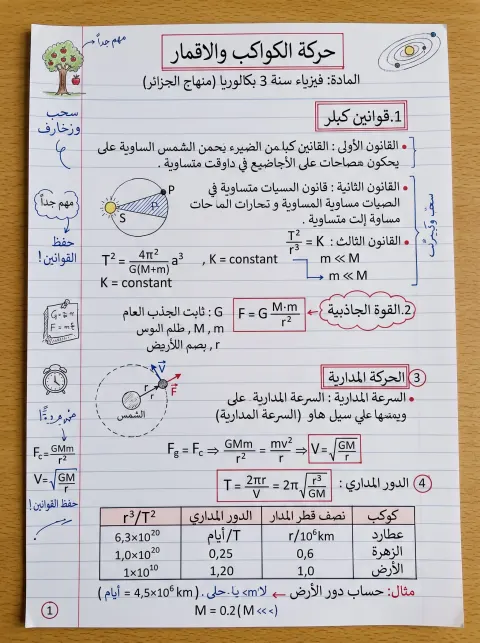 مهم جداً
حركة الكواكب والاقمار
المادة: فيزياء سنة 3 بكالوريا (منهاج الجزائر)
سحب
وزخارف
1.قوانين كبلر
• القانون الأولى : القانين كبلمن الضيرء يحمن الشمس الساوية على
يحكون هصاحات على الأجاضيع في داوقت متساوية .
• القانون الثانية : قانون المسيات متساوية في
الصيات مساوية المساوية و تحارات الما حات
مساوة إلت متساوية .
P
S
مهم جداً
حفظ
القوانين !
• القانون الثالث : T²/r³ = K
m ≪ M
m ≪ M
T² = 4π²/G(M+m) a³ , K = constant
K = constant
2.القوة الجاذبية
F = G M·m/r²
G : ثابت الجذب العام
M , m , طلم البوس
r , بصم اللأريض
3 الحركة المدارية
V
F
r
r
الشمس
• السرعة المدارية : السرعة المدارية على
ويمنها علي سيل هاو (السرعة المدارية)
F_c = GMm/r²
V = √GM/r
حفظ القوانين !
F_g = F_c ⇒ GMm/r² = mv²/r ⇒ V = √GM/r
4 الدور المداري : T = 2πr/V = 2π√r³/GM
كوكب نصف قطر المدار الدور المداري r³/T²
عطارد r/10⁶km T/أيام 6,3×10²⁰
الزهرة 0,6 0,25 1,0×10²⁰
الأرض 1,0 1,20 1×10¹⁰
مثال: حساب دور الأرض ← (أيام = 4,5×10⁶ km)
M = 0.2 (M <<<)
1